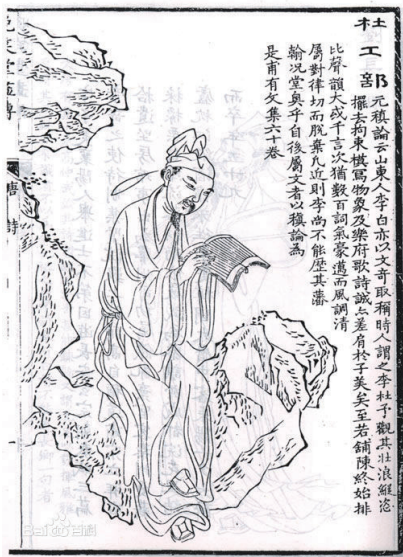 杜工部
元稹論云山東人李白亦以文奇取稱時人謂之李杜予觀其壯浪縱恣
擺去拘束模寫物象及樂府歌詩誠亦差肩於子美矣至若鋪陳終始排
比聲韻大或千言次猶數百詞氣豪邁而風調清
屬對律切而脫棄凡近則李尚不能歷其藩
翰況堂奧乎自後屬文者以稹論為
是甫有文集六十卷
晩笑堂畫傳
唐 詩
Bai度百科